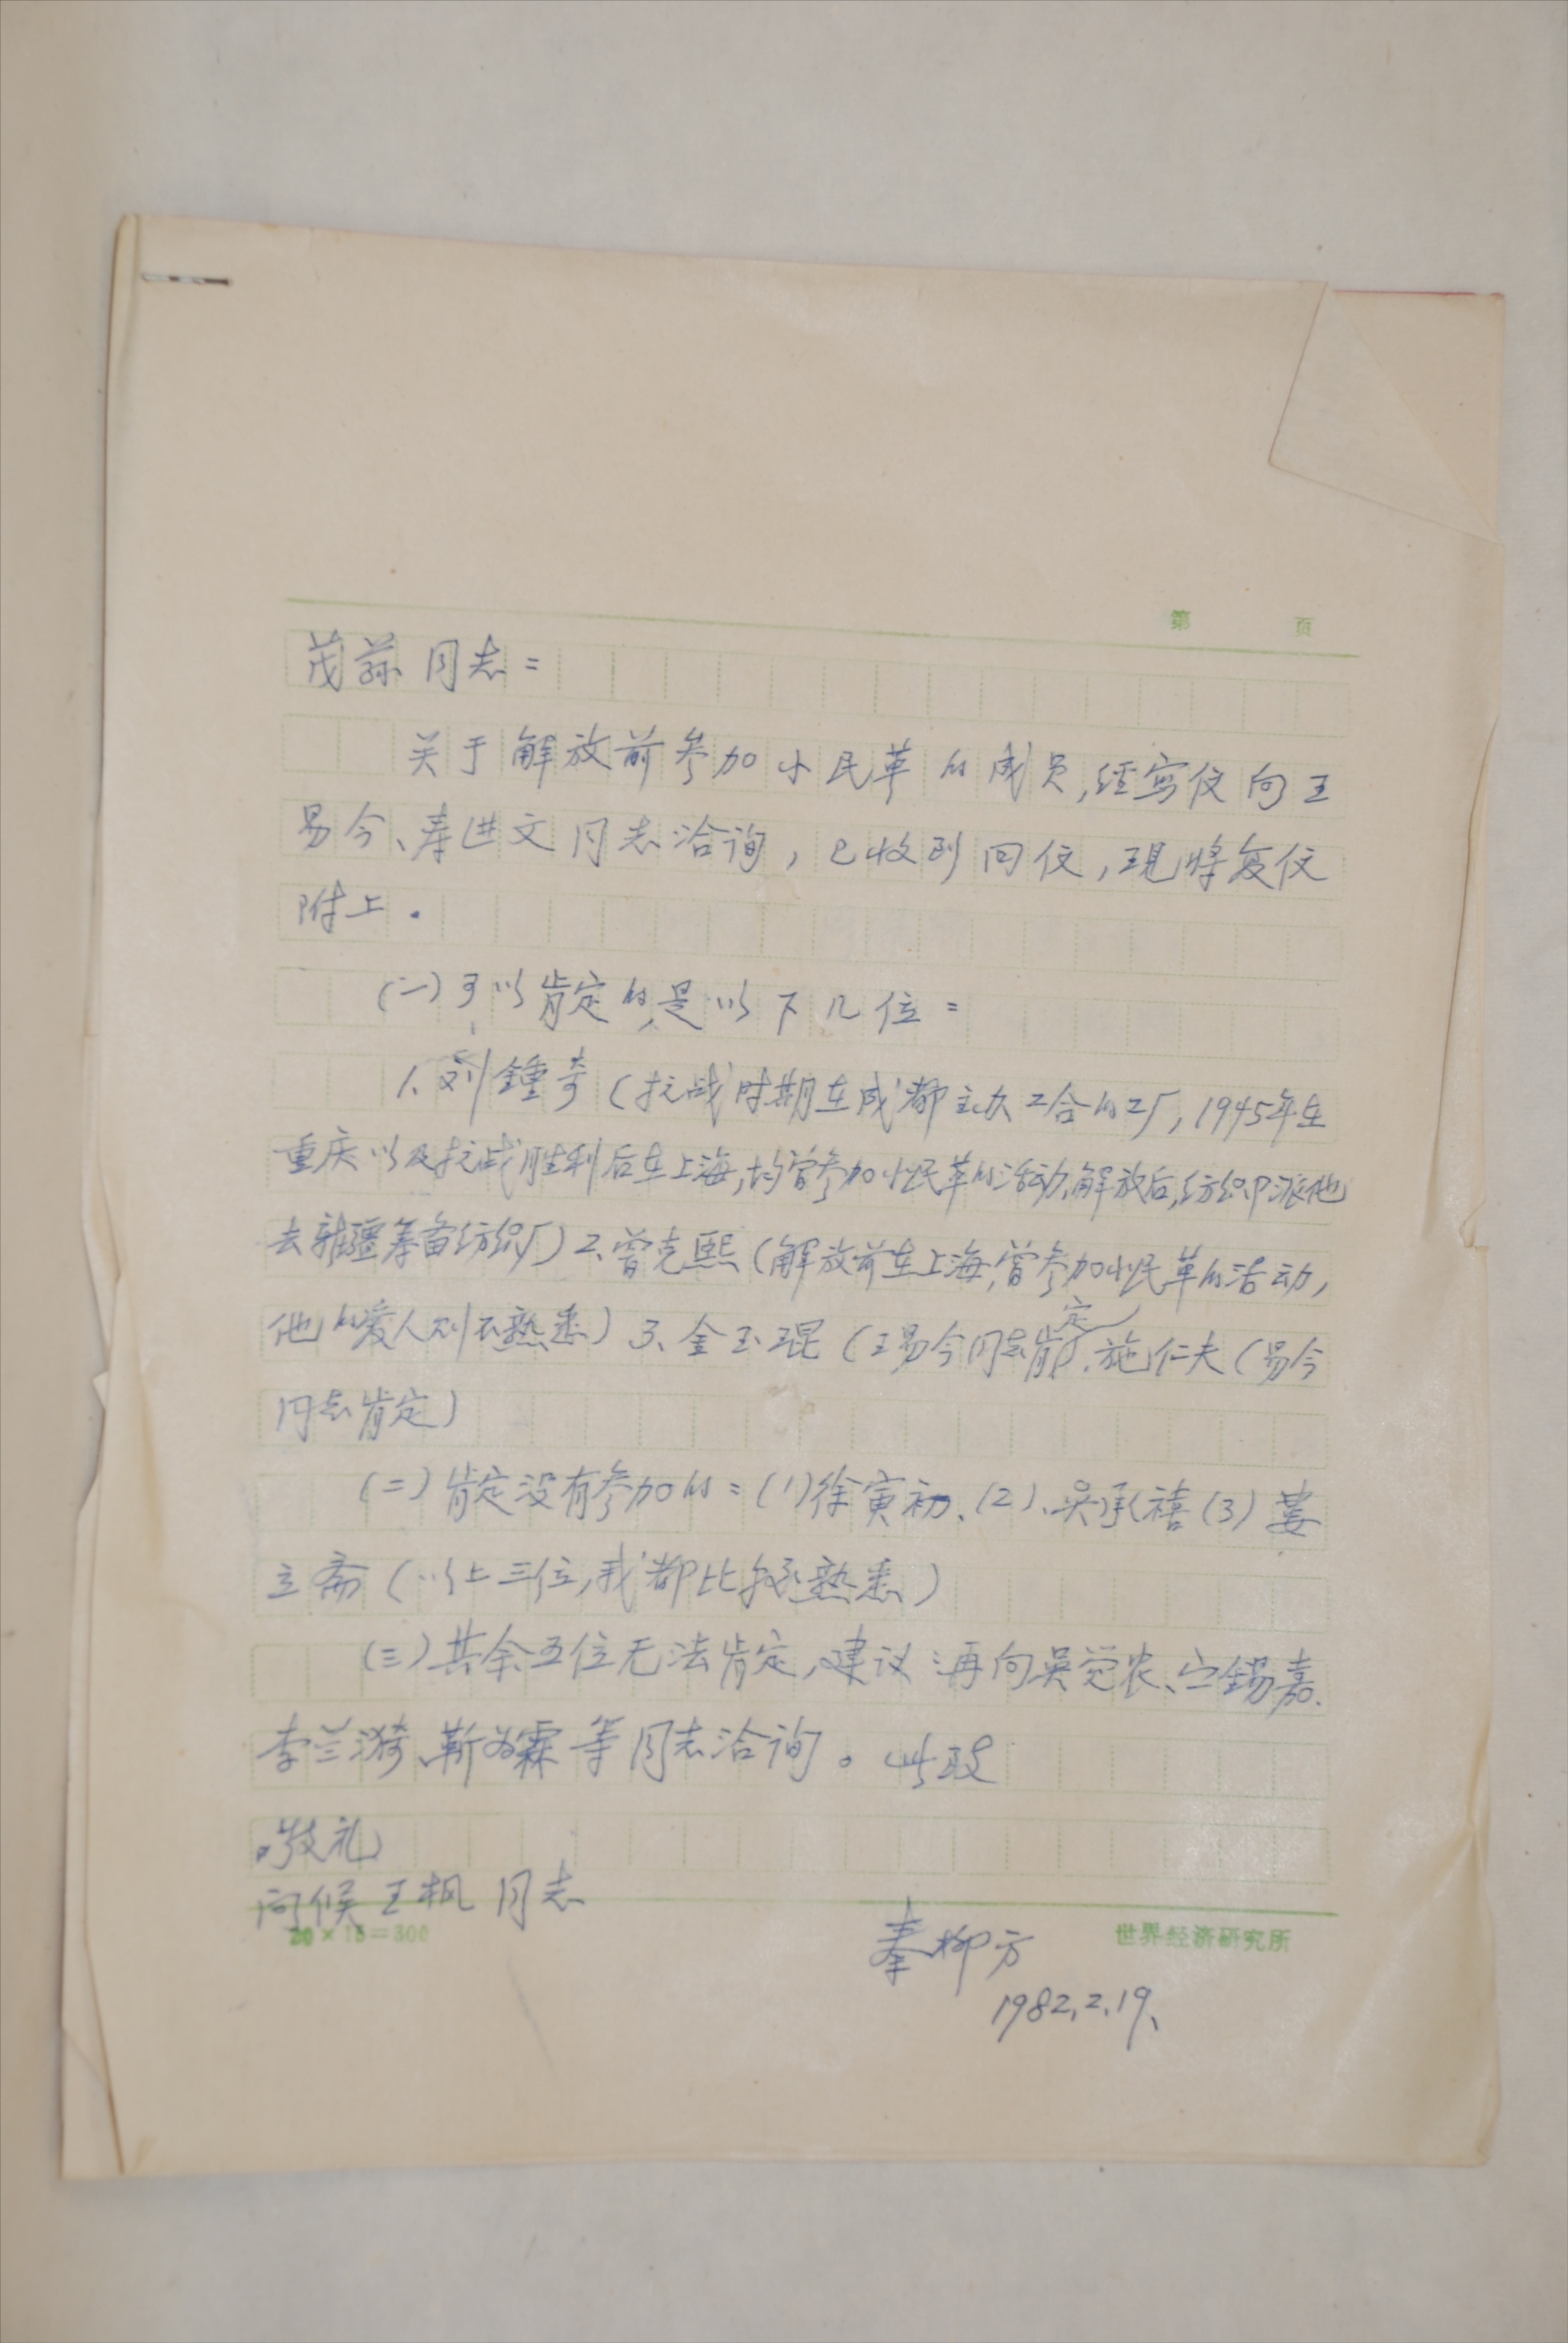 第 页
茂荪同志：
关于解放前参加小民革的成员，经写信向王
易今、寿进文同志洽询，已收到回信，现将复信
附上．
（一）可以肯定的，是以下几位：
1、刘鍾奇（抗战时期在成都主办工合的工厂，1945年在
重庆以及抗战胜利后在上海，均曾参加小民革的活动，解放后，纺织部派他
去新疆筹备纺织厂）2、曾克熙（解放前在上海，曾参加小民革的活动，
他的爱人则不熟悉）3、金玉琨（王易今同志肯定）、施仁夫（易今
同志肯定）
（二）肯定没有参加的：（1）徐寅初、（2）、吴承禧（3）娄
立斋（以上三位，我都比较熟悉）
（三）其余五位无法肯定，建议再向吴觉农、宁锡嘉、
李兰漪、靳为霖等同志洽询。此致
敬礼
问候王枫同志
20×15=300
秦柳方
世界经济研究所
1982.2.19、